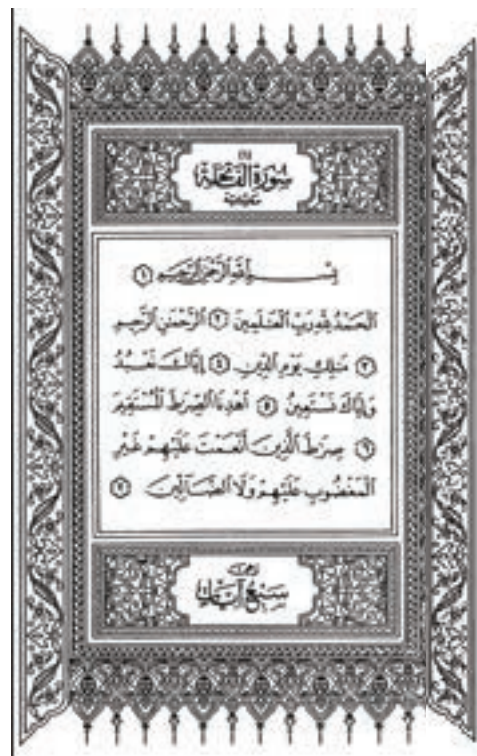 سورة الفاتحة
مكية
بِسْمِ اللَّهِ الرَّحْمَٰنِ الرَّحِيمِ ١
الْحَمْدُ لِلَّهِ رَبِّ الْعَالَمِينَ ٢ الرَّحْمَٰنِ الرَّحِيمِ
٣ مَلِكِ يَوْمِ الدِّينِ ٤ إِيَّاكَ نَعْبُدُ
وَإِيَّاكَ نَسْتَعِينُ ٥ اهْدِنَا الصِّرَاطَ الْمُسْتَقِيمَ
٦ صِرَاطَ الَّذِينَ أَنْعَمْتَ عَلَيْهِمْ غَيْرِ
الْمَغْضُوبِ عَلَيْهِمْ وَلَا الضَّالِّينَ ٧
سبع آيات